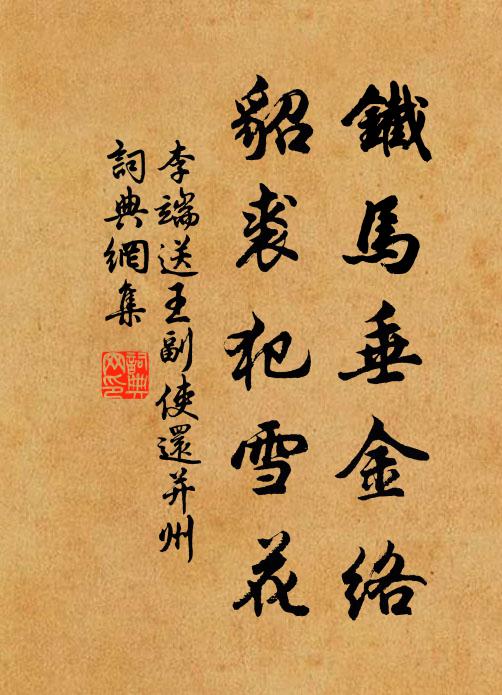 鐵馬垂金絡
貂裘犯雪花
李端送王副使還并州
詞典網集
詞典網印